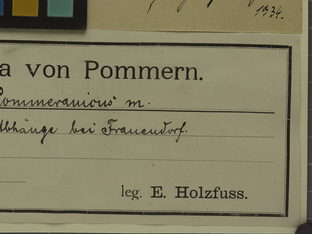 1934.
a von Pommern.
Pommeranicus m.
Abhänge bei Frauendorf.
leg. E. Holzfuss.